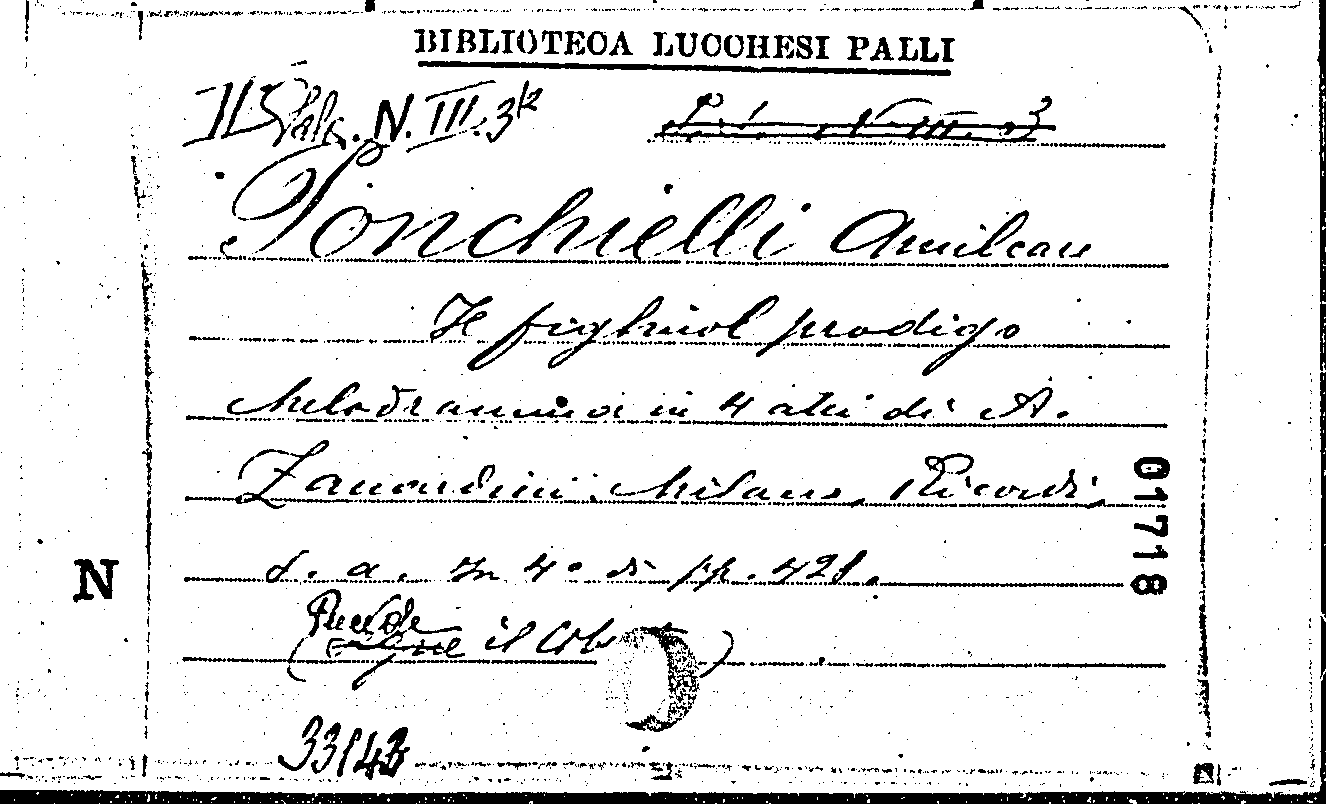 BIBLIOTECA LUCCHESI PALLI
II Sala. N. III. 3
N III. 3
Ponchielli Amilcare
Il figliuol prodigo
Melodramma in 4 atti di A.
Zanardini. Milano, Ricordi,
s. a. In 4° di pp. 428.
(Precede il Lib )
N
01718
33143